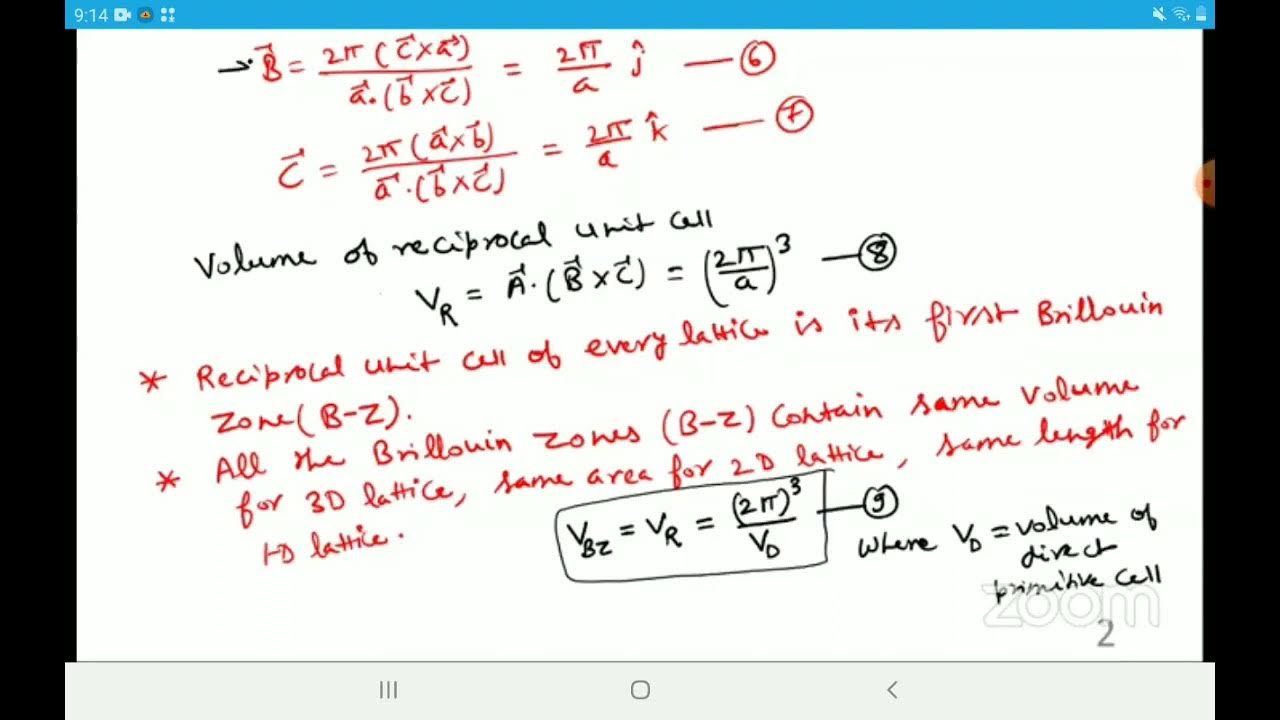 9:14
→ B⃗ = 2π (c⃗×a⃗) / a⃗·(b⃗×c⃗) = 2π/a ĵ — ⑥
C⃗ = 2π (a⃗×b⃗) / a⃗·(b⃗×c⃗) = 2π/a k̂ — ⑦
Volume of reciprocal unit cell
V_R = A⃗·(B⃗×C⃗) = (2π/a)³ — ⑧
* Reciprocal unit cell of every lattice is its first Brillouin
Zone(B-Z).
* All the Brillouin zones (B-Z) contain same volume
for 3D lattice, same area for 2D lattice, same length for
1-D lattice.
V_BZ = V_R = (2π)³/V_D — ⑨
where V_D = volume of
direct
primitive cell
zoom
2